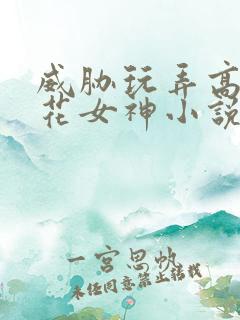 威胁玩弄高
花女神小说
一宫思帆
未经同意禁止转载